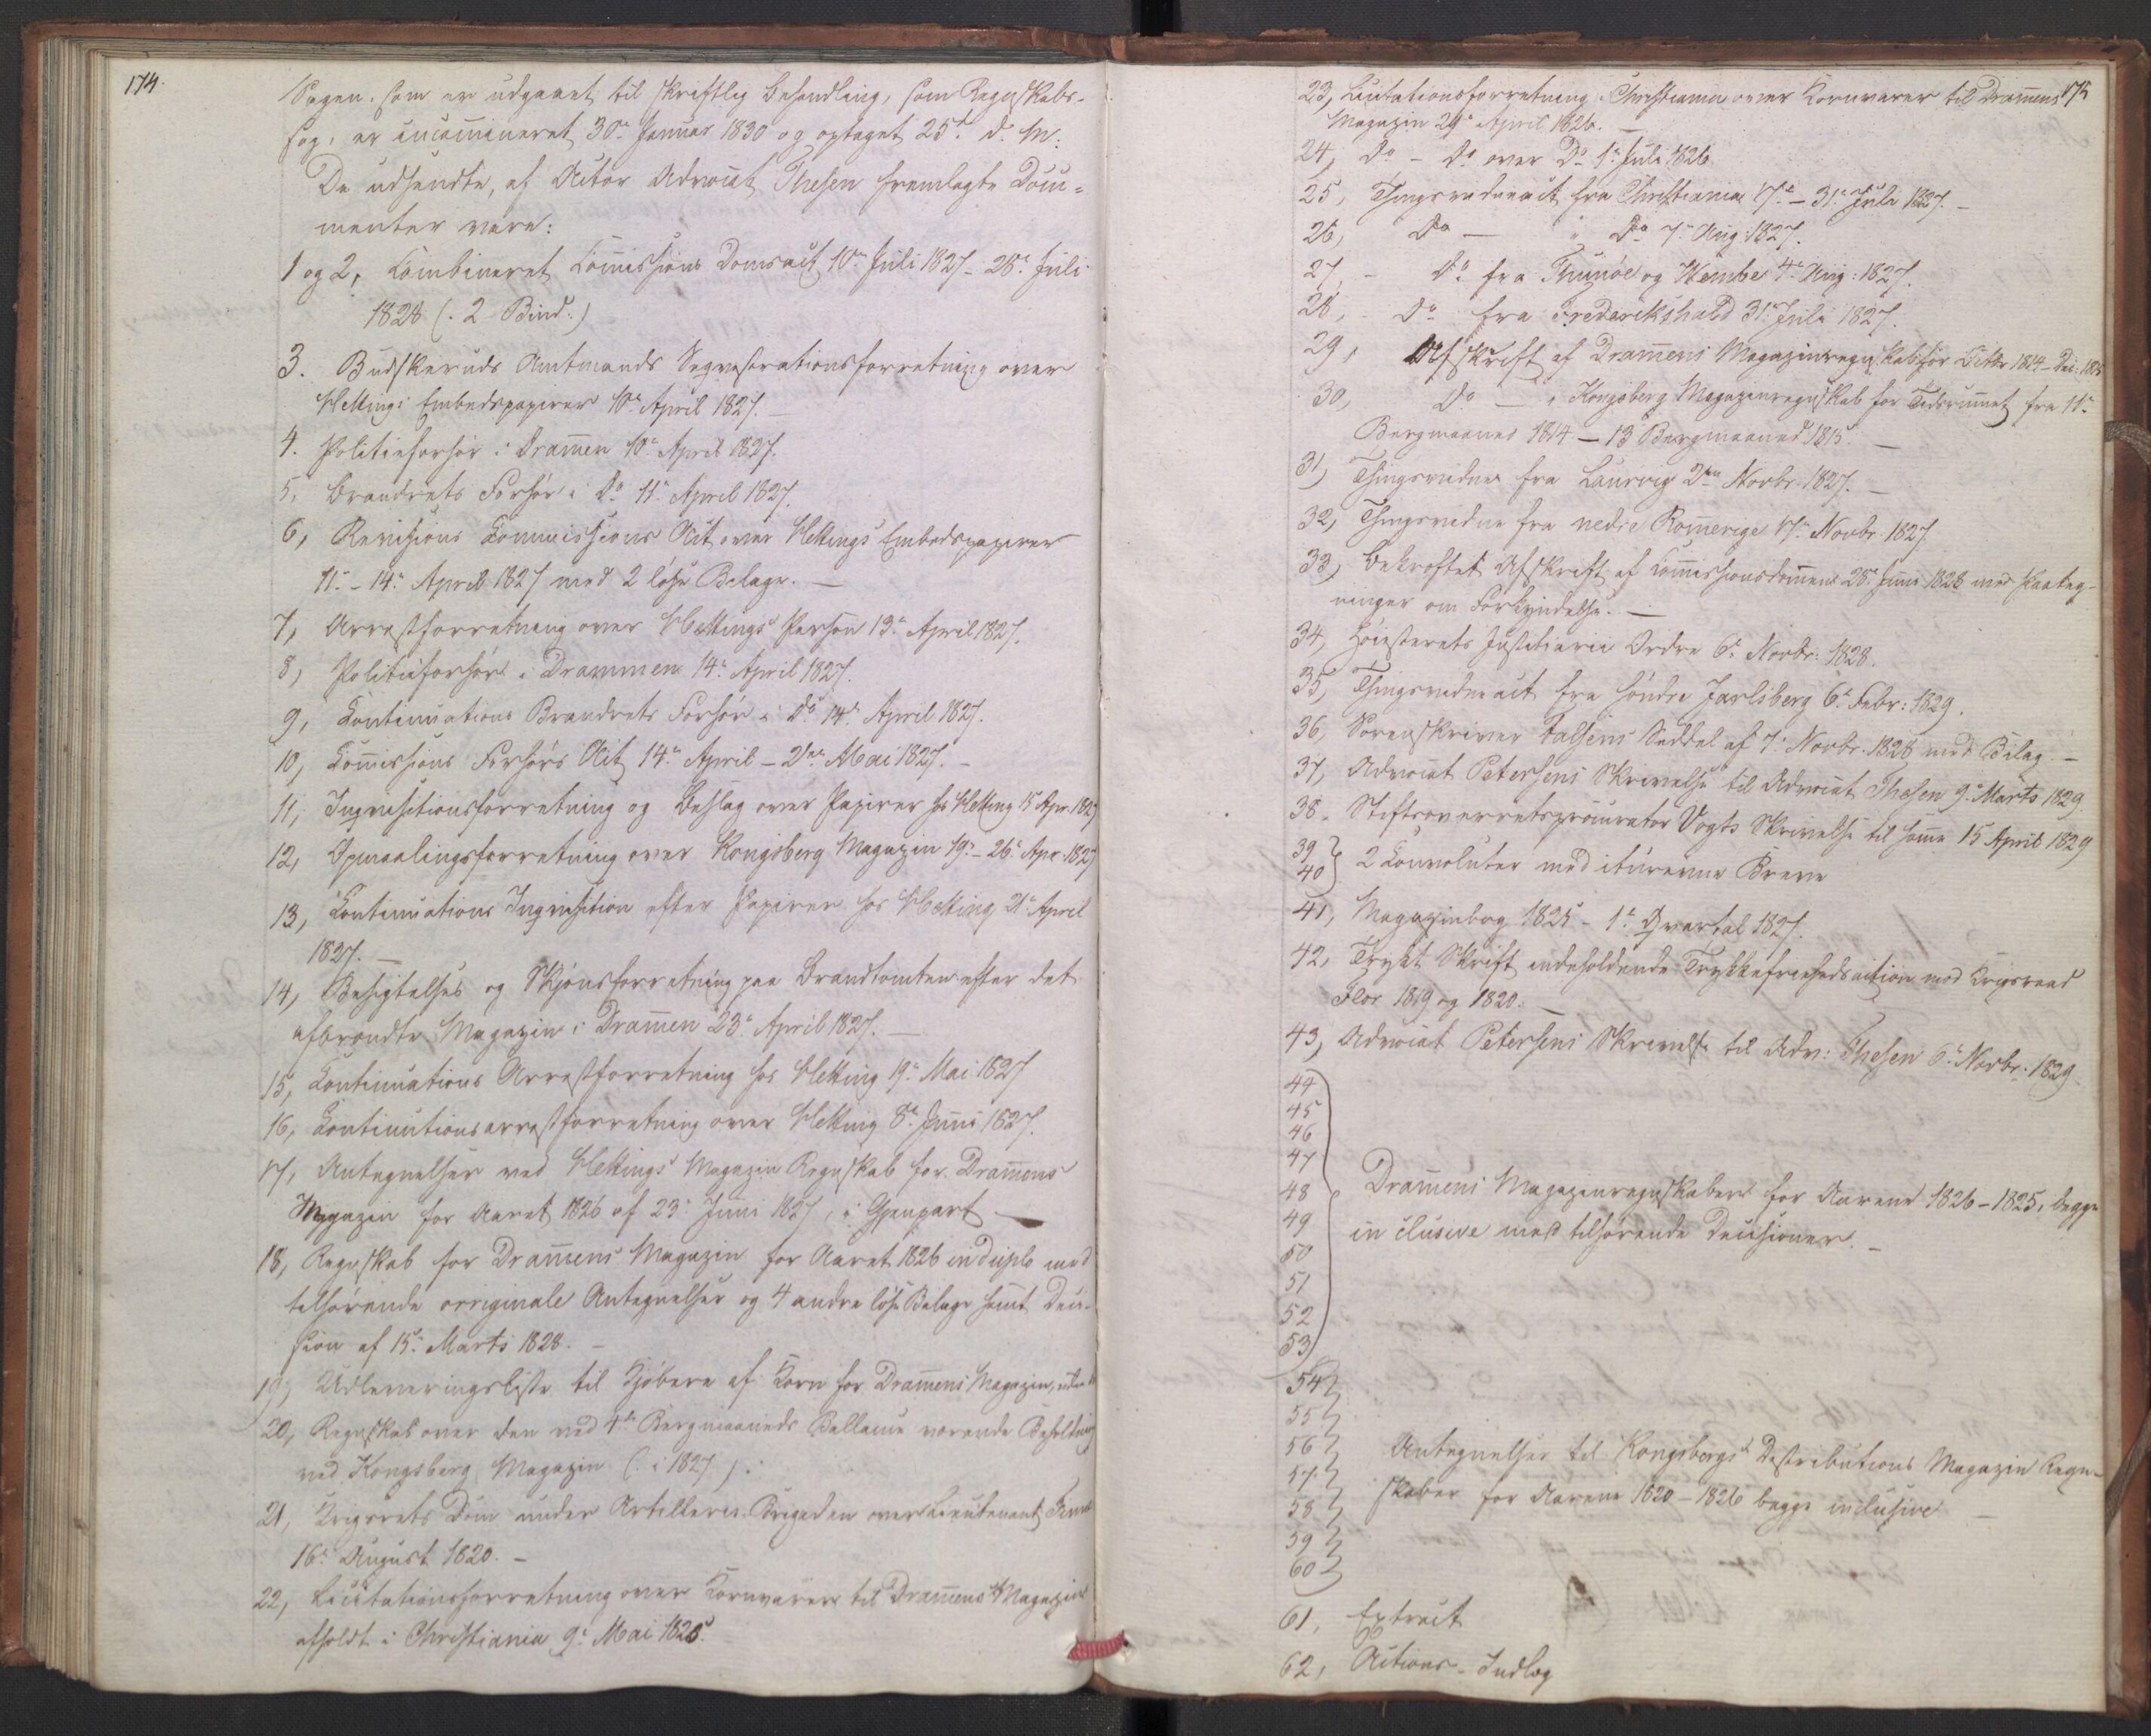 174.
Sagen, som er udgaaet til skriftlig Behandling, som Regnskabs-
sag, er incamineret 30te Januar 1830 og optaget 25de d. M:
De udsendte, af Actor Advocat Thesen fremlagte Docu=
menter vare:
1 og 2, Combineret Commissions Domsact 10de Juli 1827 - 28de Juli
1828 (: 2 Bind:)
3. Budskeruds Amtmands Seqvestrationsforretning over
Hettings Embedspapirer 10de April 1827. —
4. Politieforhør i Dramen 10de April 1827.
5, Brandrets Forhør i Do 11te April 1827.
6, Revisions Commissions Act over Hettings Embedspapirer
11te - 14de April 1827 med 2 løse Belage. —
7, Arrestforretning over Hettings Person 13de April 1827.
8, Politieforhør i Drammen 14de April 1827.
9, Continuations Brandrets Forhør i Do 14de April 1827.
10, Commissions Forhørs Act 14de April - 2den Mai 1827. -
11, Inqvisitionsforretning og Beslag over Papirer hos Hetting 15 Apr. 1827
12, Opmaalingsforretning over Kongsberg Magazin 19de - 26de Apr. 1827
13, Continuations Inqvisition efter Papirer hos Hetting 21de April
1827. —
14, Besigtelses og Skjønsforretning paa Brandtomten efter det
afbrændte Magazin i Dramen 23de April 1827. —
15, Continuations Arrestforretning hos Hetting 19de Mai 1827
16, Continutionsarrestforretning over Hetting 8de Juni 1827.
17, Antegnelser ved Hettings Magazin Regnskab for Dramens
Magazin for Aaret 1826 af 23de Juni 1827, i Gjenpart —
18, Regnskab for Dramens Magazin for Aaret 1826 in duplo med
tilhørende originale Antegnelser og 4 andre løse Bilage samt Deci-
sion af 15de Marts 1828. —
19, Udleveringsliste til Kjøbere af Korn for Dramens Magazin,
20, Regnskab over den ved 4de Bergmaaneds Ballance værende Beholdning
ved Kongsberg Magazin (: i 1827 ):
21, Krigsrets Dom under Artillerie Brigaden over Lieutenant
16de August 1820. —
22, Licitationsforretning over Kornvarer til Dramens Magazin
afholdt i Christiania 9de Mai 1825.
175
23, Licitationsforretning i Christiania over Kornvarer til Dramens
Magazin 29de April 1826. —
24, Do - Do over Do 1te Juli 1826
25, Thingsvidneact fra Christiania 17de - 31te Juli 1827. —
26, Do — " Do 7de Aug: 1827.
27, - Do fra Thunøe og Hembe 4de Aug: 1827.
28, - Do fra Frederikshald 31te Juli 1827.
29, Afskrift af Dramens Magazinregnskab for Octbr 1814 - Dec: 1815
30, Do — " Kongsberg Magazinregnskab for Tidsrummet fra 11te
Bergmaaned 1814 — 13 Bergmaaned 1815. —
31, Thingsvidne fra Laurvig 2den Novbr. 1827. —
32, Thingsvidne fra nedre Romerige 17de Novbr. 1827
33, Bekræftet Afskrift af Commissionsdommen 28de Juni 1828 med Paateg-
ninger om Forkyndelse. —
34, Høiesterets Justitiarii Ordre 6te Novbr. 1828.
35, Thingsvidneact fra søndre Jarlsberg 6te Febr: 1829.
36, Sorenskriver Falsens Seddel af 7de Novbr. 1828 med Bilag. —
37, Advocat Petersens Skrivelse til Advocat Thesen 9de Marts 1829.
38. Stiftsoverretsprocurator Vogts Skrivelse til samme 15 April 1829
39
40 } 2 Convoluter med itureevne Breve
41, Magazinbog 1825 - 1te Qvartal 1827.
42, Trykt Skrift indeholdende Trykkefrihedsaction mod Krigsraad
Flor 1819 og 1820. —
43, Advocat Petersens Skrivelse til Adv: Thesen 6te Novbr. 1829.
44
45
46
47
48 Dramens Magazinregnskaber for Aarene 1826-1825, begge
49 inclusive med tilhørende Decisioner. —
50
51
52
53
54
55
56 Antegnelser til Kongsbergs Distributions Magazin Regn-
57 skaber for Aarene 1820 - 1826 begge inclusive —
58
59
60
61, Extract
62, Actions-Indlæg